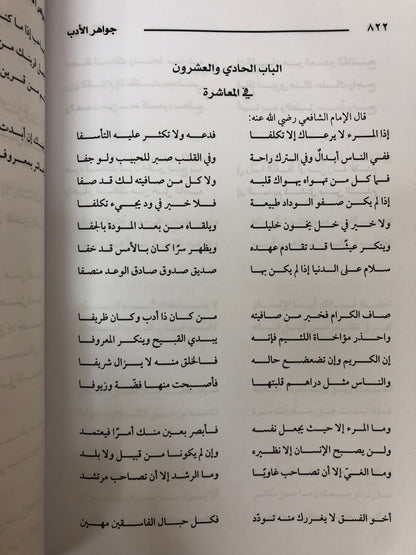 جواهر الأدب ٨٢٢
الباب الحادي والعشرون
في المعاشرة
قال الإمام الشافعي رضي الله عنه:
إذا المرء لا يرعاك إلا تكلفا فدعه ولا تكثر عليه التأسفا
ففي الناس أبدالٌ وفي الترك راحة وفي القلب صبر للحبيب ولو جفا
فما كل من تهواه يهواك قلبه ولا كل من صافيته لك قد صفا
إذا لم يكن صفو الوداد طبيعة فلا خير في ود يجيء تكلفا
ولا خير في خل يخون خليله ويلقاه من بعد المودة بالجفا
وينكر عيشًا قد تقادم عهده ويظهر سرًا كان بالأمس قد خفا
سلام على الدنيا إذا لم يكن بها صديق صدوق صادق الوعد منصفا
صاف الكرام فخير من صافيته من كان ذا أدب وكان ظريفا
واحذر مؤاخاة اللئيم فإنه يبدي القبيح وينكر المعروفا
إن الكريم وإن تضعضع حاله فالخلق منه لا يزال شريفا
والناس مثل دراهم قلبتها فأصبحت منها فضّة وزيوفا
وما المرء إلا حيث يجعل نفسه فأبصر بعين منك أمرًا فيعتمد
ولن يصحب الإنسان إلا نظيره وإن لم يكونا من قبيل ولا بلد
وما الغيّ إلا أن تصاحب غاويًا وما الرشد إلا أن تصاحب مرتشد
أخو الفسق لا يغررك منه تودّد فكل حبال الفاسقين مهين